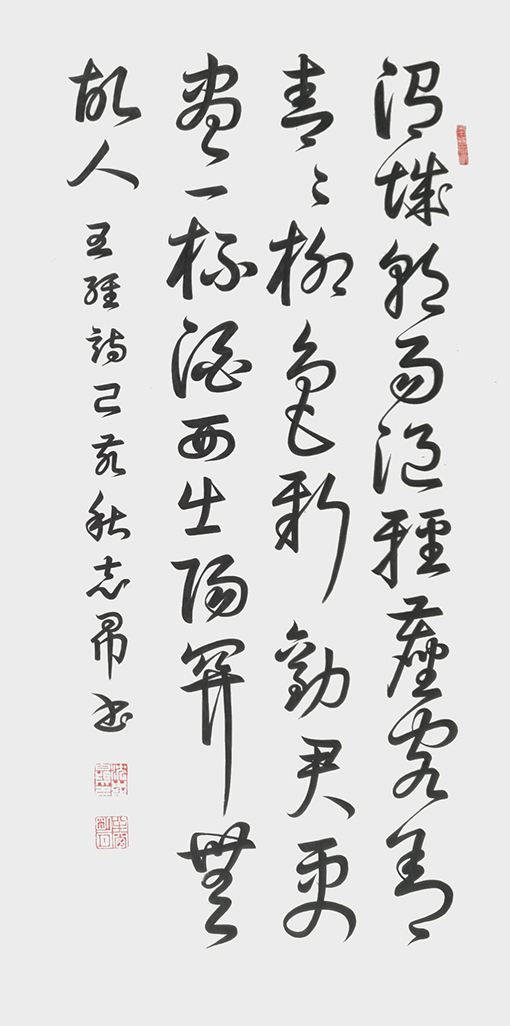 渭城朝雨浥輕塵客舍
青々柳色新勸君更
盡一杯酒西出陽關無
故人 王維詩己亥秋志昂書